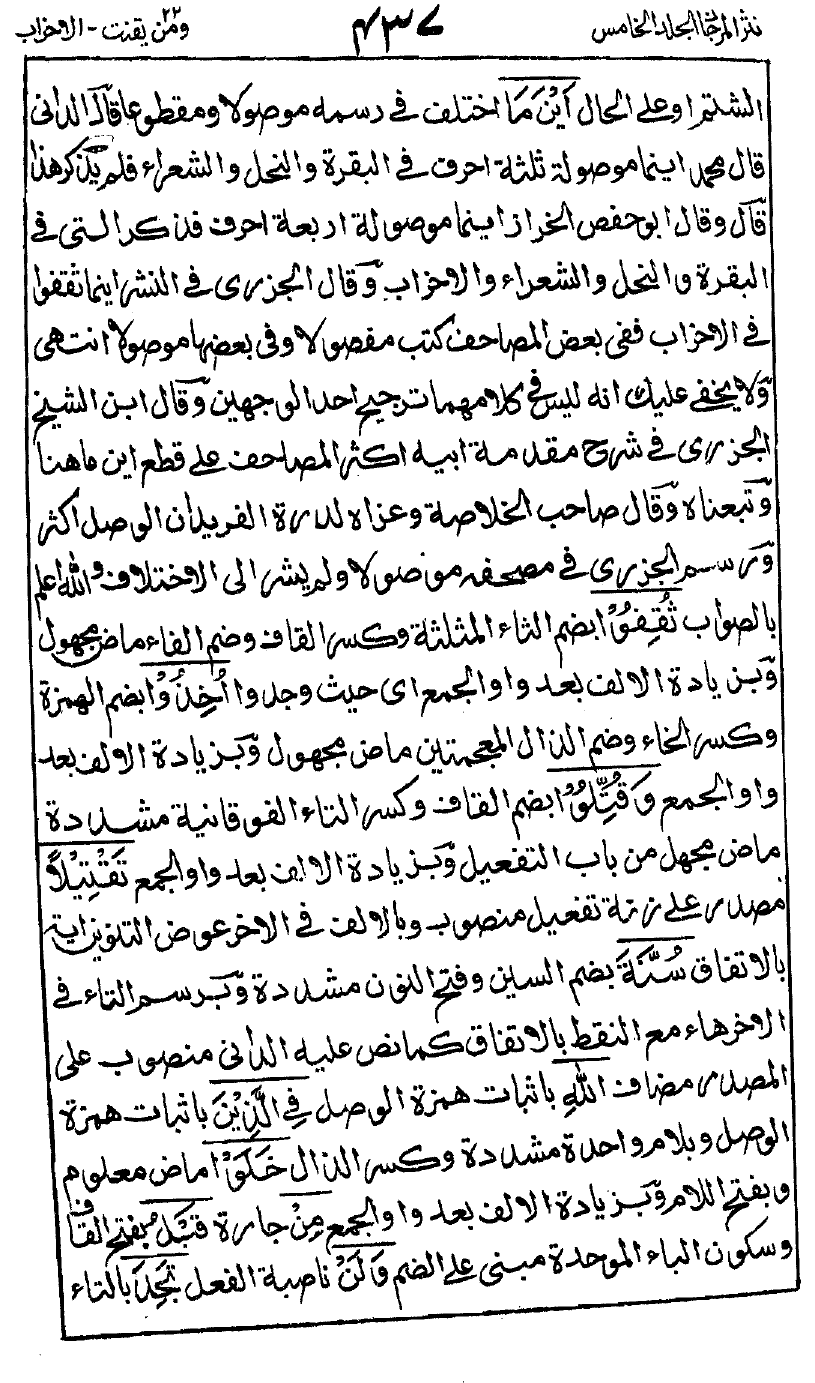 نثر المرجان المجلد الخامس
٤٣٧
ومن يقنت ٢٢ - الاحزاب
الشتم او على الحال اَيْنَ مَا اختلف فى رسمه موصولا ومقطوعا قال الدانى
قال محمد اينما موصولة ثلثة احرف فى البقرة والنحل والشعراء فلم يذكر هذا
قال وقال ابو حفص الخراز اينما موصولة اربعة احرف فذكر التى فى
البقرة والنحل والشعراء والاحزاب وقال الجزرى فى النشر اينما ثقفوا
فى الاحزاب ففى بعض المصاحف كتب مفصولا وفى بعضها موصولا انتهى
ولا يخفى عليك انه ليس فى كلامهما ترجيح احد الوجهين وقال ابن الشيخ
الجزرى فى شرح مقدمة ابيه اكثر المصاحف على قطع اين ما هنا
وتبعناه وقال صاحب الخلاصة وعزاه لدرة الفريد ان الوصل اكثر
ورسم الجزرى فى مصحفه موصولا ولم يشر الى الاختلاف والله اعلم
بالصواب ثُقِفُوْا بضم الثاء المثلثة وكسر القاف وضم الفاء ماض مجهول
وبزيادة الالف بعد واو الجمع اى حيث وجدوا اُخِذُوْا بضم الهمزة
وكسر الخاء وضم الذال المعجمتين ماض مجهول وبزيادة الالف بعد
واو الجمع وَقُتِّلُوْا بضم القاف وكسر التاء الفوقانية مشددة
ماض مجهل من باب التفعيل وبزيادة الالف بعد واو الجمع تَقْتِيْلًا
مصدر على زنة تفعيل منصوب وبالالف فى الاخر عوض التنوين اية
بالاتفاق سُنَّةَ بضم السين وفتح النون مشددة وبرسم التاء فى
الاخر هاء مع النقط بالاتفاق كما نص عليه الدانى منصوب على
المصدر مضاف اللهِ باثبات همزة الوصل فِى الَّذِيْنَ باثبات همزة
الوصل وبلام واحدة مشددة وكسر الذال خَلَوْا ماض معلوم
وبفتح اللام وبزيادة الالف بعد واو الجمع مِنْ جارة قَبْلُ بفتح القاف
وسكون الباء الموحدة مبنى على الضم وَلَنْ ناصبة الفعل تَجِدَ بالتاء